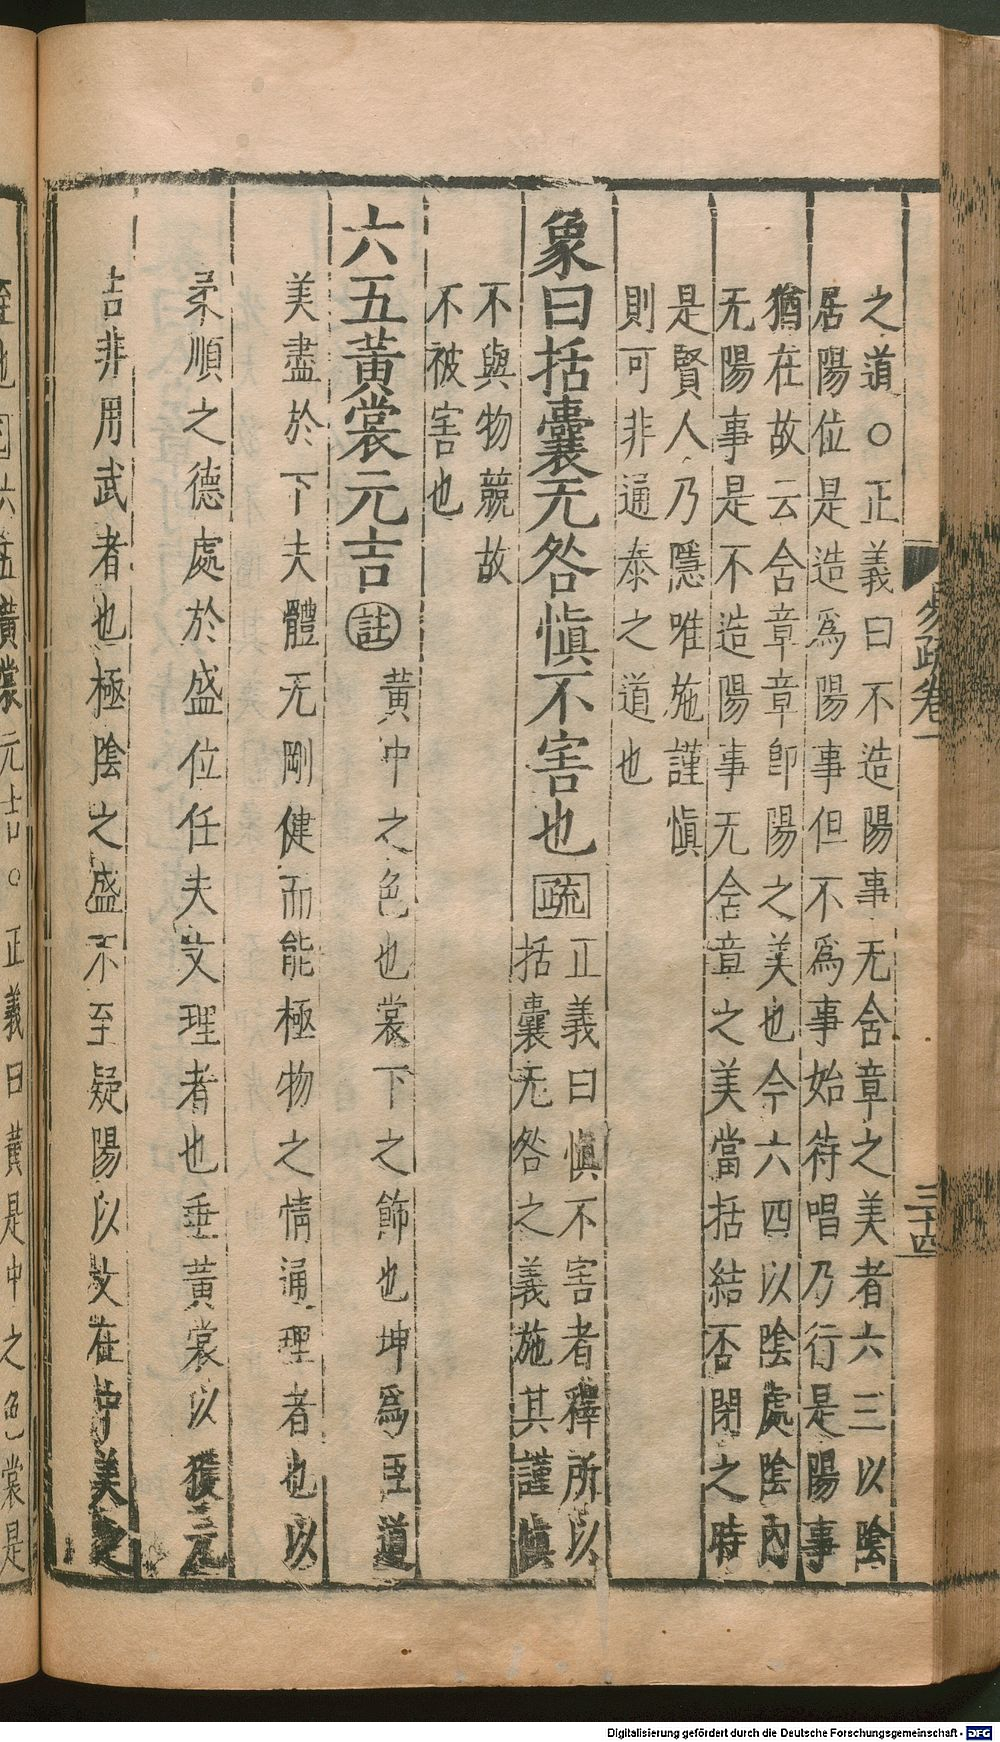 之道○正義曰不造陽事无含章之美者六三以陰
居陽位是造為陽事但不為事始待唱乃行是陽事
猶在故云含章章即陽之美也今六四以陰處陰內
无陽事是不造陽事无含章之美當括結否閉之時
是賢人乃隱唯施謹慎
則可非通泰之道也
象曰括囊无咎慎不害也 疏
正義曰慎不害者釋所以
括囊无咎之義施其謹慎
不與物競故
不被害也
六五黃裳元吉 註 黃中之色也裳下之飾也坤為臣道
美盡於下夫體无剛健而能極物之情通理者也以
柔順之德處於盛位任夫文理者也垂黃裳以獲元
吉非用武者也極陰之盛不至疑陽以文在中美之
至也 疏 六五黃裳元吉○正義曰黃是中之色裳是
易疏卷一
三十四
Digitalisierung gefördert durch die Deutsche Forschungsgemeinschaft - DFG